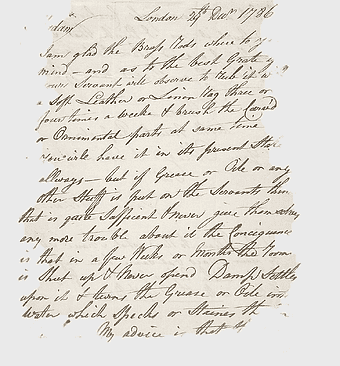 London 29th Decr 1786
dam
I am glad the Brass Rods where to y
mind - and as to the best Grate y
Servant will observe to Rub it w
a Soft Leather or Linnon Rag three or
four times a weeke & brush the Carved
or Ornimental parts at same time
you will have it in its present State
allways - but if Grease or Oile or any
other Stuff is put on the Servants think
that is quite Sufficent & never give themselves
any more trouble about it the Conciquence
is that in a few Weeks or Months the Room
is Shut up & Never opend Damp Settles
upon it & turns the Grease or Oile into
Water which Specks or Staines th
My advice is that th